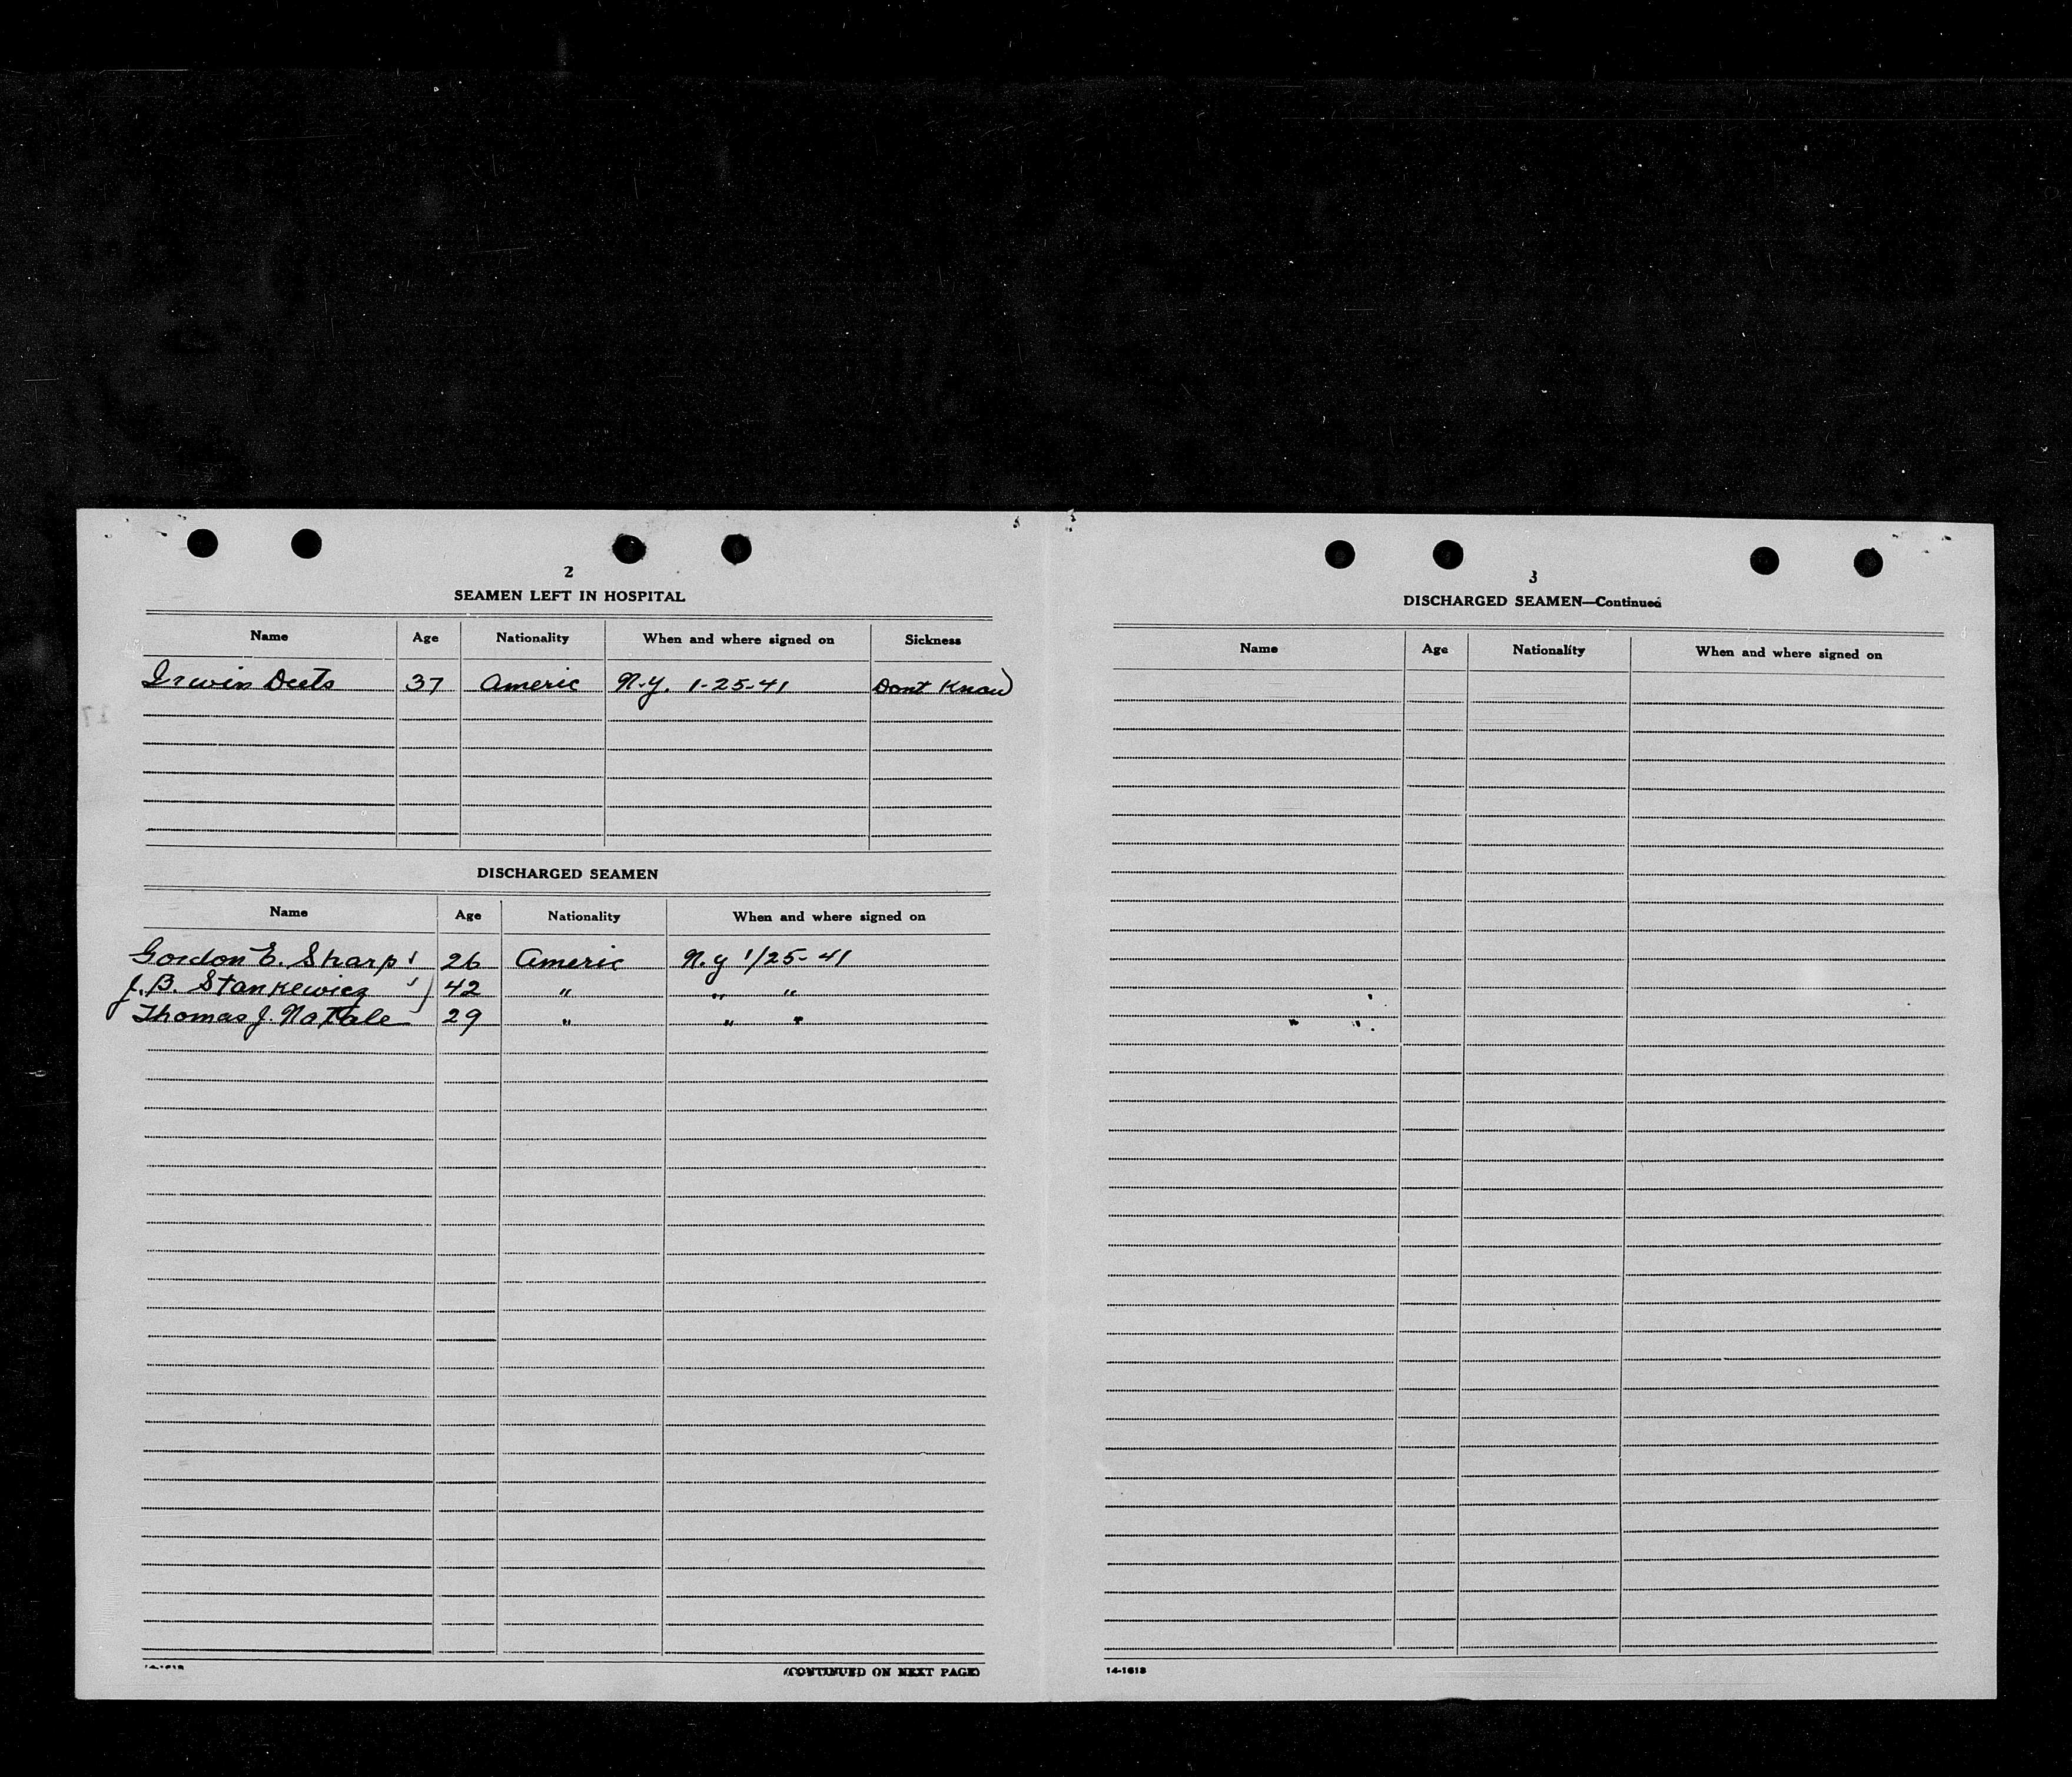 2
SEAMEN LEFT IN HOSPITAL
Name Age Nationality When and where signed on Sickness
Irwin Deets 37 Americ N.Y. 1-25-41 Dont Know
DISCHARGED SEAMEN
Name Age Nationality When and where signed on
Gordon E. Sharp 26 Americ N.Y 1/25-41
J.B. Stankewicz 42 " " "
Thomas J. Natale 29 " " "
(CONTINUED ON NEXT PAGE)
3
DISCHARGED SEAMEN—Continued
Name Age Nationality When and where signed on
14-1613